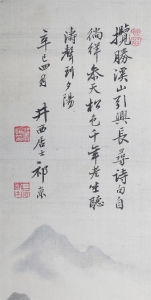 攬勝溪山引興長尋詩向自
徜徉參天松色千年老坐聽
濤聲到夕陽
辛巳四月
井西居士祁京